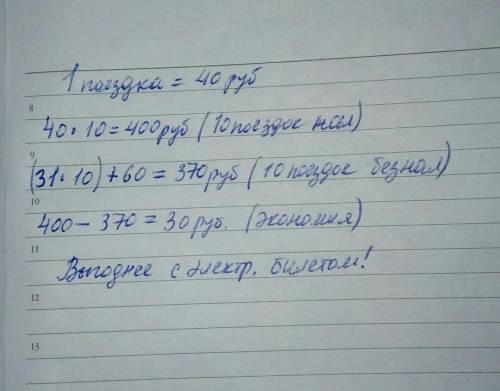 1 поездка = 40 руб
8
40·10=400руб (10поездок нал)
9
(31·10)+60=370руб (10поездок безнал)
10
400-370=30руб. (экономия)
11
Выгоднее с электр. билетом!
12
13